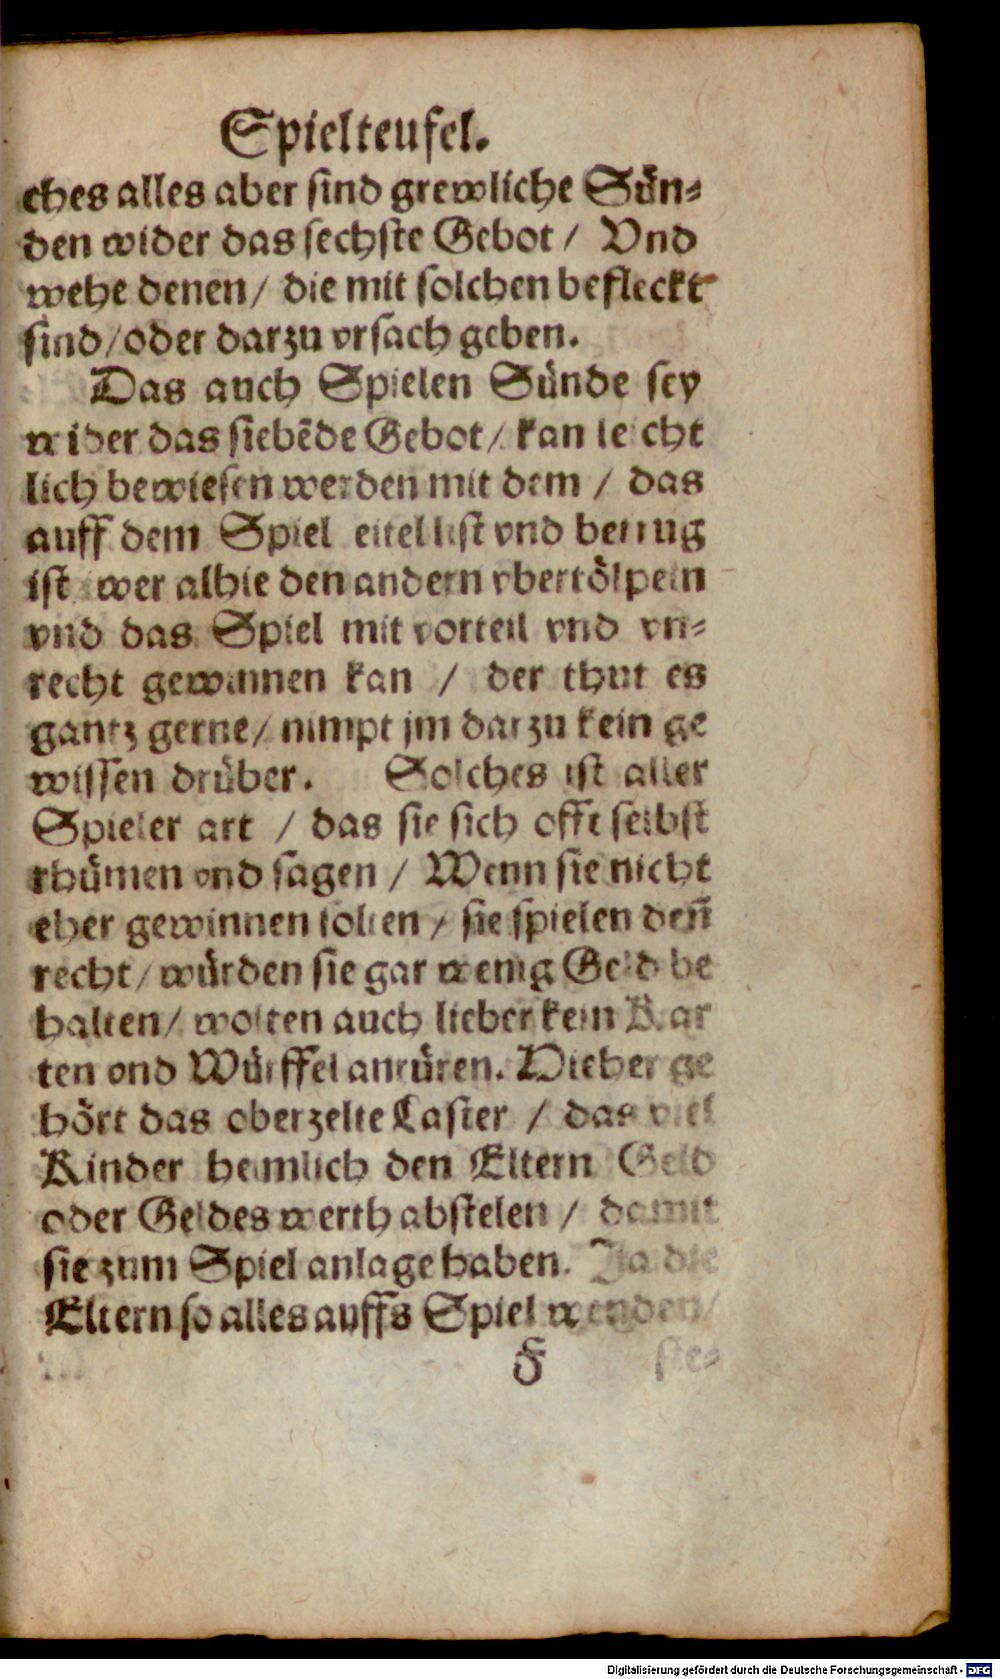 Spielteufel.
ches alles aber sind grewliche Sün-
den wider das sechste Gebot / Vnd
wehe denen / die mit solchen befleckt
sind / oder darzu vrsach geben.
Das auch Spielen Sünde sey
wider das siebẽde Gebot / kan leicht
lich bewiesen werden mit dem / das
auff dem Spiel eitel list vnd betrug
ist wer alhie den andern vbertölpeln
vnd das Spiel mit vorteil vnd vn-
recht gewinnen kan / der thut es
gantz gerne / nimpt jm darzu kein ge
wissen drüber. Solches ist aller
Spieler art / das sie sich offt selbst
rhümen vnd sagen / Wenn sie nicht
eher gewinnen solten / sie spielen deñ
recht / würden sie gar wenig Geld be
halten / wolten auch lieber kein Kar
ten vnd Würffel anrüren. Hieher ge
hört das oberzelte Laster / das viel
Kinder heimlich den Eltern Geld
oder Geldes werth abstelen / damit
sie zum Spiel anlage haben. Ja die
Eltern so alles auffs Spiel wenden /
F ste-
Digitalisierung gefördert durch die Deutsche Forschungsgemeinschaft - DFG